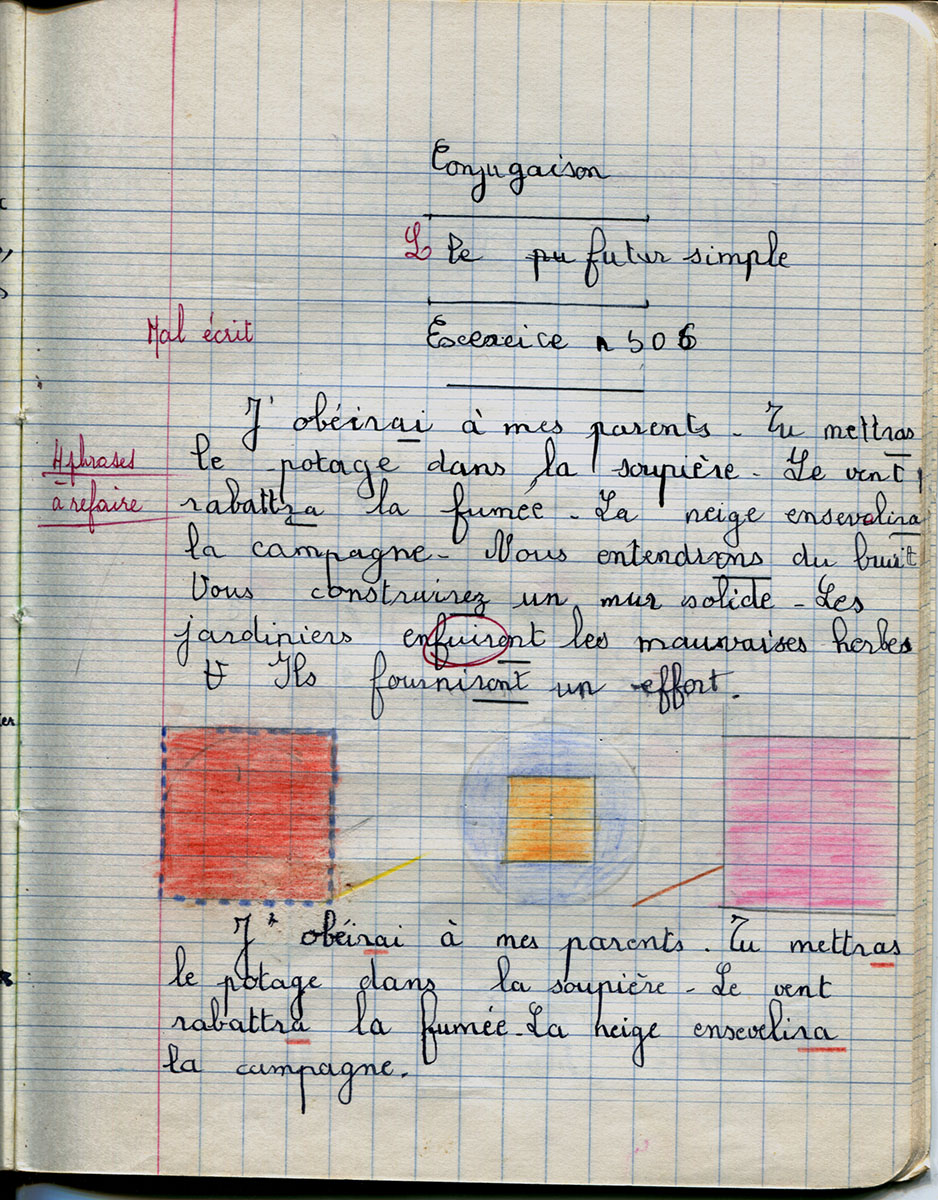 Conjugaison
L le pu futur simple
Mal écrit
Escercice n 506
J'obéirai à mes parents. Tu mettras
4 phrases
à refaire
le potage dans la soupière. Le vent
rabattra la fumée. La neige ensevelira
la campagne. Nous entendrons du bruit
Vous construirez un mur solide. Les
jardiniers enfuiront les mauvaises herbes
Ils fourniront un effort.
J'obéirai à mes parents. Tu mettras
le potage dans la soupière. Le vent
rabattra la fumée. La neige ensevelira
la campagne.